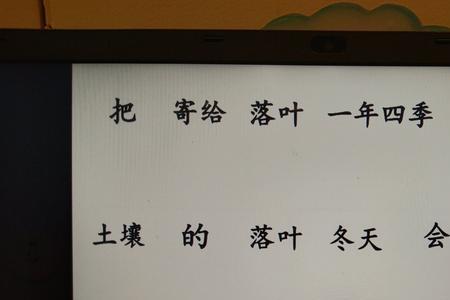 把 寄给 落叶 一年四季
土壤 的 落叶 冬天 会